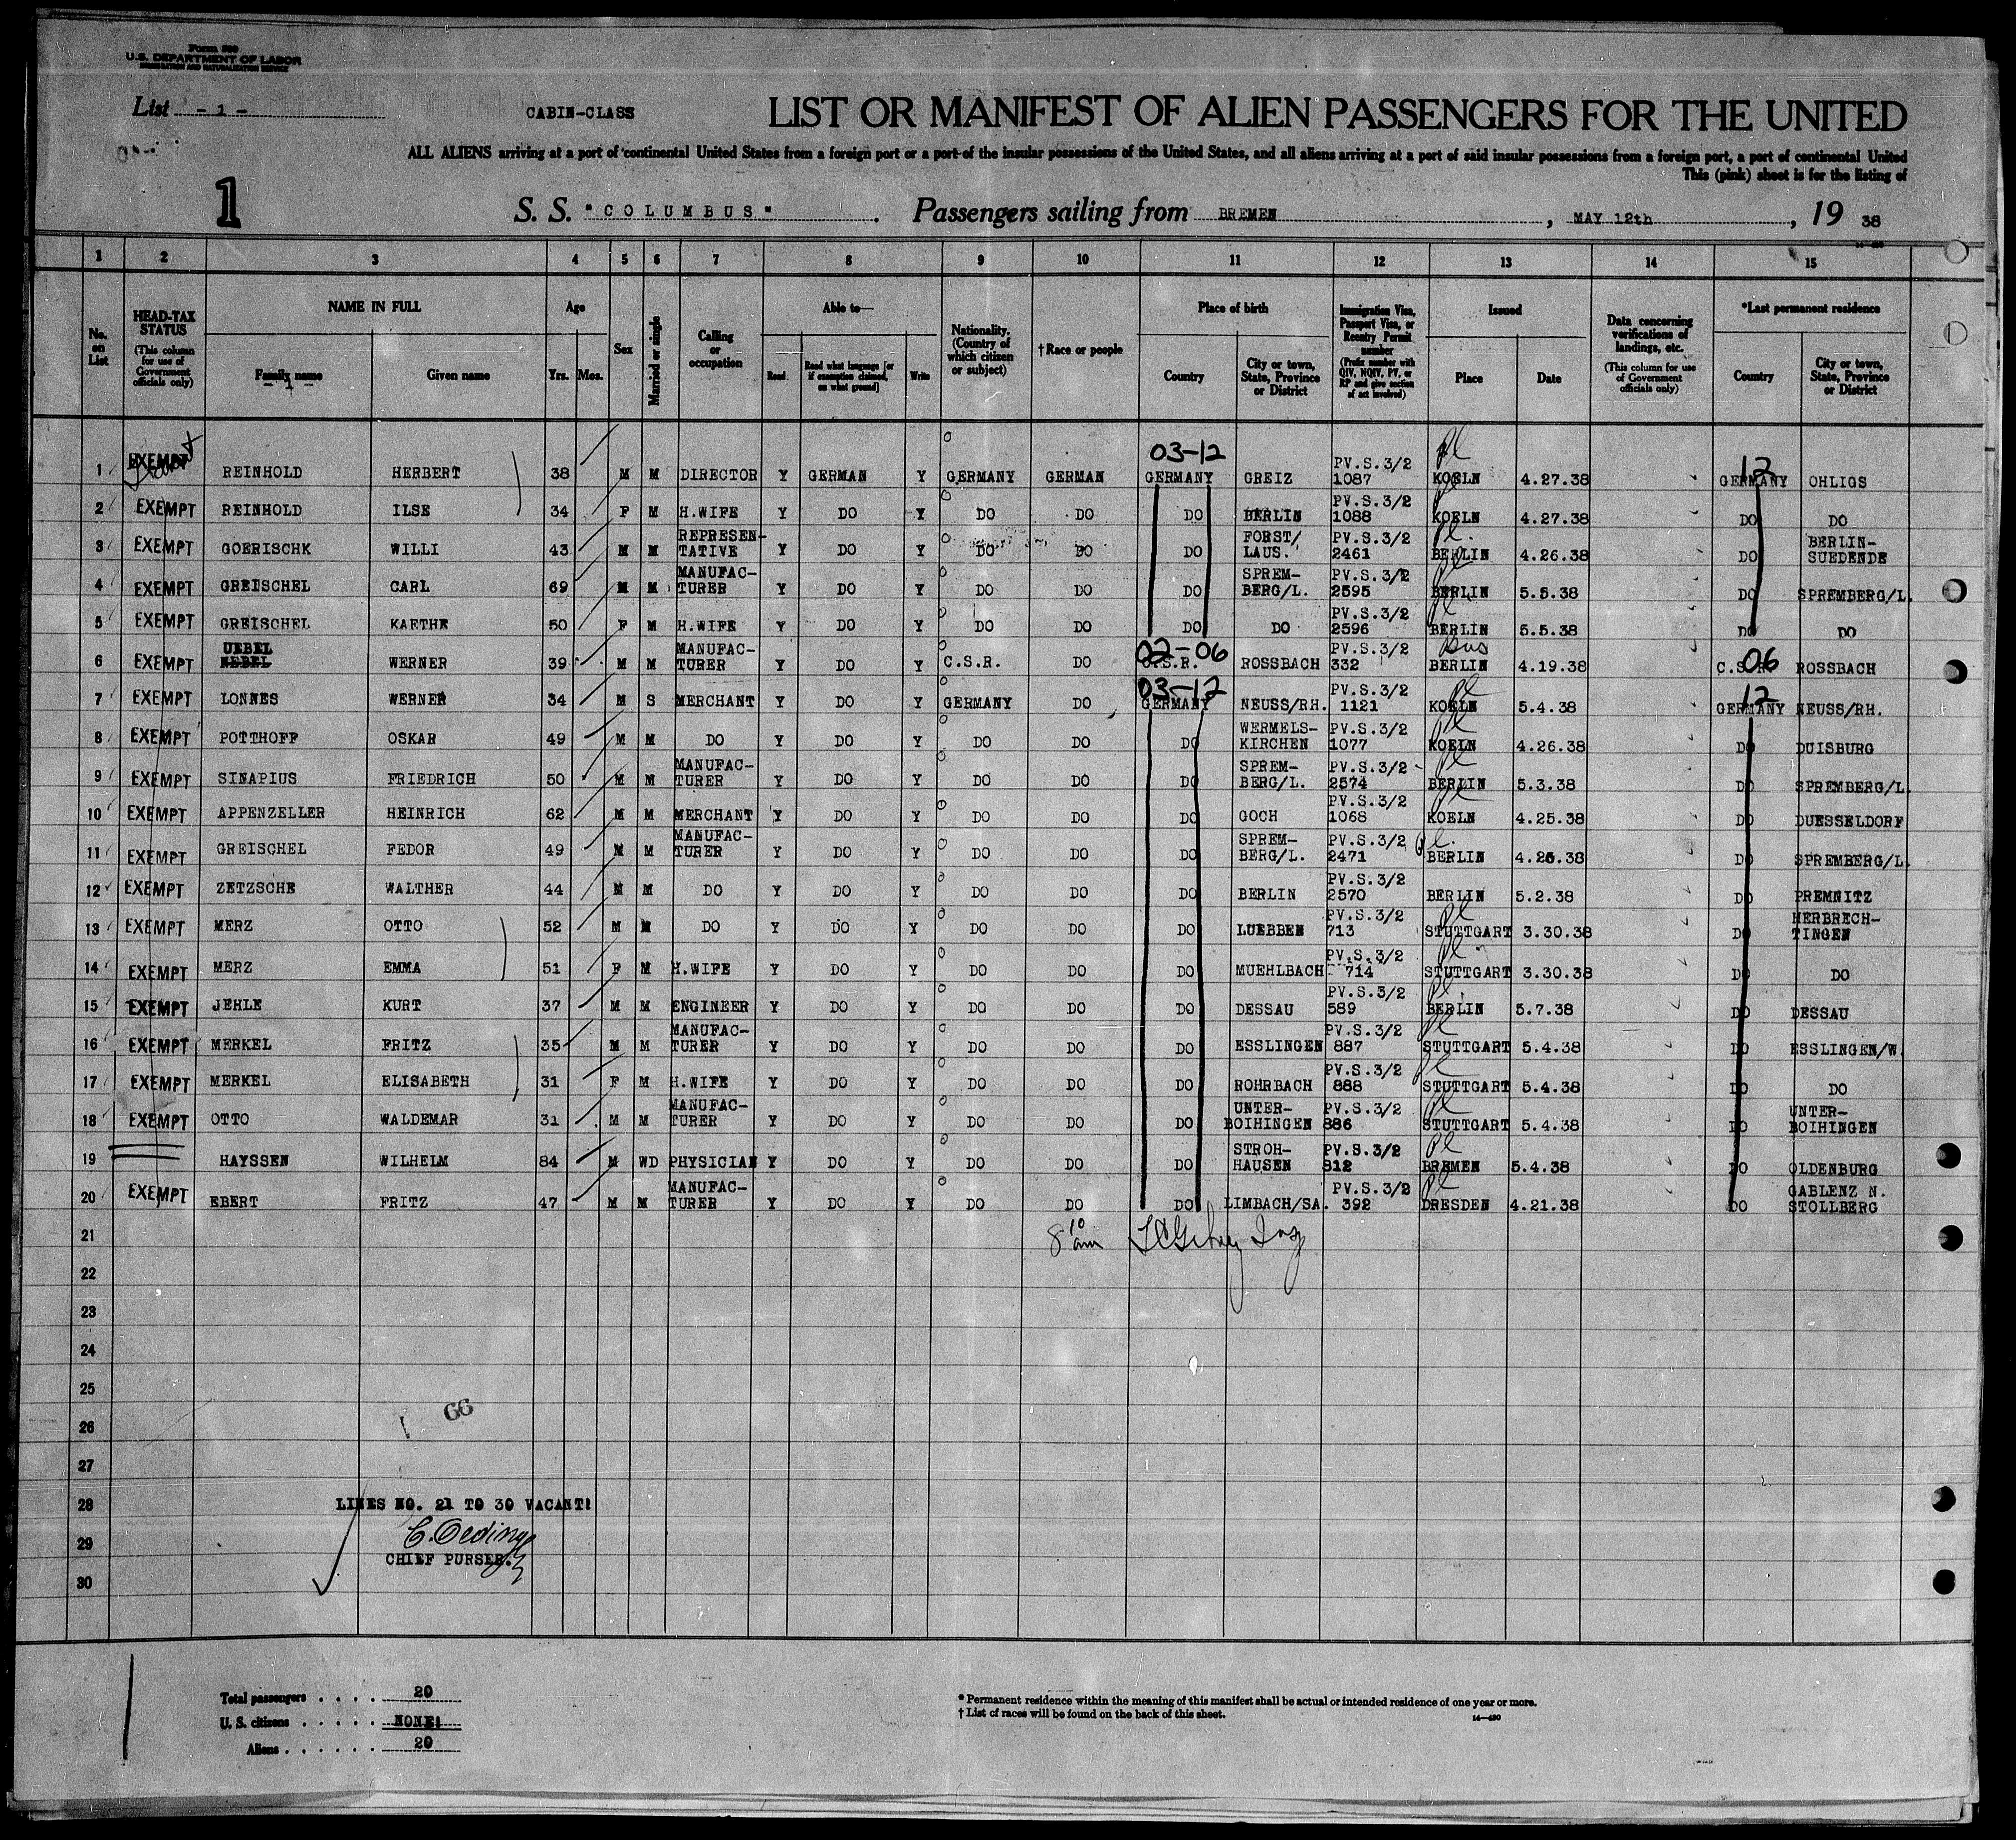 Form 500
U.S. DEPARTMENT OF LABOR
IMMIGRATION AND NATURALIZATION SERVICE
List - 1 -
CABIN-CLASS
LIST OR MANIFEST OF ALIEN PASSENGERS FOR THE UNITED
ALL ALIENS arriving at a port of continental United States from a foreign port or a port of the insular possessions of the United States, and all aliens arriving at a port of said insular possessions from a foreign port, a port of continental United
This (pink) sheet is for the listing of
1
S. S. "COLUMBUS" . Passengers sailing from BREMEN , MAY 12th , 19 38
1 2 3 4 5 6 7 8 9 10 11 12 13 14 15
No. on List
HEAD-TAX STATUS (This column for use of Government officials only)
NAME IN FULL
Family name Given name
Age
Yrs. Mos.
Sex
Married or single
Calling or occupation
Able to—
Read Read what language [or if exemption claimed, on what ground] Write
Nationality. (Country of which citizen or subject)
† Race or people
Place of birth
Country City or town, State, Province or District
Immigration Visa, Passport Visa, or Reentry Permit number (Prefix number with QIV, NQIV, PV, or RP and give section of act involved)
Issued
Place Date
Data concerning verifications of landings, etc. (This column for use of Government officials only)
*Last permanent residence
Country City or town, State, Province or District
03-12 12
1 EXEMPT REINHOLD HERBERT 38 M M DIRECTOR Y GERMAN Y GERMANY GERMAN GERMANY GREIZ PV.S.3/2 1087 KOELN 4.27.38 GERMANY OHLIGS
2 EXEMPT REINHOLD ILSE 34 F M H.WIFE Y DO Y DO DO DO BERLIN PV.S.3/2 1088 KOELN 4.27.38 DO DO
3 EXEMPT GOERISCHK WILLI 43 M M REPRESEN-TATIVE Y DO Y DO DO DO FORST/LAUS. PV.S.3/2 2461 BERLIN 4.26.38 DO BERLIN-SUEDENDE
4 EXEMPT GREISCHEL CARL 69 M M MANUFAC-TURER Y DO Y DO DO DO SPREM-BERG/L. PV.S.3/2 2595 BERLIN 5.5.38 DO SPREMBERG/L.
5 EXEMPT GREISCHEL KAETHE 50 F M H.WIFE Y DO Y DO DO DO DO PV.S.3/2 2596 BERLIN 5.5.38 DO DO
02-06 06
6 EXEMPT UEBEL WERNER 39 M M MANUFAC-TURER Y DO Y C.S.R. DO C.S.R. ROSSBACH PV.S.3/2 332 BERLIN 4.19.38 C.S.R. ROSSBACH
03-12 12
7 EXEMPT LONNES WERNER 34 M S MERCHANT Y DO Y GERMANY DO GERMANY NEUSS/RH. PV.S.3/2 1121 KOELN 5.4.38 GERMANY NEUSS/RH.
8 EXEMPT POTTHOFF OSKAR 49 M M DO Y DO Y DO DO DO WERMELS-KIRCHEN PV.S.3/2 1077 KOELN 4.26.38 DO DUISBURG
9 EXEMPT SINAPIUS FRIEDRICH 50 M M MANUFAC-TURER Y DO Y DO DO DO SPREM-BERG/L. PV.S.3/2 2574 BERLIN 5.3.38 DO SPREMBERG/L
10 EXEMPT APPENZELLER HEINRICH 62 M M MERCHANT Y DO Y DO DO DO GOCH PV.S.3/2 1068 KOELN 4.25.38 DO DUESSELDORF
11 EXEMPT GREISCHEL FEDOR 49 M M MANUFAC-TURER Y DO Y DO DO DO SPREM-BERG/L. PV.S.3/2 2471 BERLIN 4.26.38 DO SPREMBERG/L.
12 EXEMPT ZETZSCHE WALTHER 44 M M DO Y DO Y DO DO DO BERLIN PV.S.3/2 2570 BERLIN 5.2.38 DO PREMNITZ
13 EXEMPT MERZ OTTO 52 M M DO Y DO Y DO DO DO LUEBBEN PV.S.3/2 713 STUTTGART 3.30.38 DO HERBRECH-TINGEN
14 EXEMPT MERZ EMMA 51 F M H.WIFE Y DO Y DO DO DO MUEHLBACH PV.S.3/2 714 STUTTGART 3.30.38 DO DO
15 EXEMPT JEHLE KURT 37 M M ENGINEER Y DO Y DO DO DO DESSAU PV.S.3/2 589 BERLIN 5.7.38 DO DESSAU
16 EXEMPT MERKEL FRITZ 35 M M MANUFAC-TURER Y DO Y DO DO DO ESSLINGEN PV.S.3/2 887 STUTTGART 5.4.38 DO ESSLINGEN/W.
17 EXEMPT MERKEL ELISABETH 31 F M H.WIFE Y DO Y DO DO DO ROHRBACH PV.S.3/2 888 STUTTGART 5.4.38 DO DO
18 EXEMPT OTTO WALDEMAR 31 M M MANUFAC-TURER Y DO Y DO DO DO UNTER-BOIHINGEN PV.S.3/2 886 STUTTGART 5.4.38 DO UNTER-BOIHINGEN
19 HAYSSEN WILHELM 84 M WD PHYSICIAN Y DO Y DO DO DO STROH-HAUSEN PV.S.3/2 812 BREMEN 5.4.38 DO OLDENBURG
20 EXEMPT EBERT FRITZ 47 M M MANUFAC-TURER Y DO Y DO DO DO LIMBACH/SA. PV.S.3/2 392 DRESDEN 4.21.38 DO GABLENZ N. STOLLBERG
21 8 10 am
22
23
24
25
26 66
27
28 LINES NO. 21 TO 30 VACANT!
29 C. Oeding
CHIEF PURSER.
30
Total passengers . . . . 20
U. S. citizens . . . . . NONE!
Aliens . . . . . . 20
* Permanent residence within the meaning of this manifest shall be actual or intended residence of one year or more.
† List of races will be found on the back of this sheet.
14—480